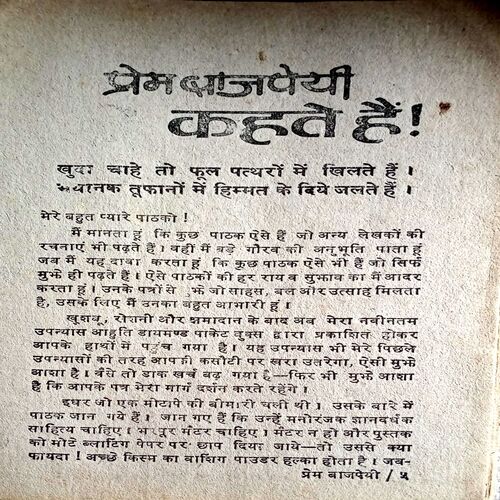 प्रेम बाजपेयी
कहते हैं!
खुदा चाहे तो फूल पत्थरों में खिलते हैं ।
भयानक तूफानों में हिम्मत के दिये जलते हैं ।
मेरे बहुत प्यारे पाठको !
मैं मानता हूं कि कुछ पाठक ऐसे हैं जो अन्य लेखकों की
रचनाएं भी पढ़ते हैं । वहीं मैं बड़े गौरव की अनुभूति पाता हूं
जब मैं यह दावा करता हूं कि कुछ पाठक ऐसे भी हैं जो सिर्फ
मुझे ही पढ़ते हैं । ऐसे पाठकों की हर राय व सुझाव का मैं आदर
करता हूं । उनके पत्रों से मुझे जो साहस, बल और उत्साह मिलता
है, उसके लिए मैं उनका बहुत आभारी हूं ।
खुशबू, रोशनी और श्रमादान के बाद अब मेरा नवीनतम
उपन्यास आहुति डायमण्ड पाकेट बुक्स द्वारा प्रकाशित होकर
आपके हाथों में पहुंच गया है । यह उपन्यास भी मेरे पिछले
उपन्यासों की तरह आपकी कसौटी पर खरा उतरेगा, ऐसी मुझे
आशा है । वैसे तो डाक खर्च बढ़ गया है—फिर भी मुझे आशा
है कि आपके पत्र मेरा मार्ग दर्शन करते रहेंगे ।
इधर जो एक मोटापे की बीमारी चली थी । उसके बारे में
पाठक जान गये हैं । जान गए हैं कि उन्हें मनोरंजक ज्ञानवर्धक
साहित्य चाहिए । भरपूर मैटर चाहिए । मैटर न हो और पुस्तक
को मोटे ब्लाटिंग पेपर पर छाप दिया जाये—तो उससे क्या
फायदा ! अच्छे किस्म का वाशिंग पाउडर हल्का होता है । जब-
प्रेम बाजपेयी / ५